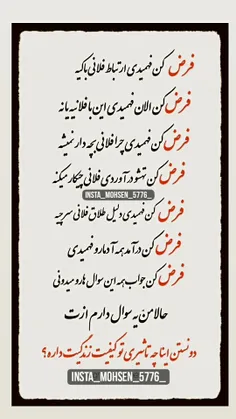 فرض کن فهمیدی ارتباط فلانی باکیه
فرض کن الان فهمیدی این با فلانیه یا نه
فرض کن فهمیدی چرا فلانی بچه دار نمیشه
فرض کن تهشو درآوردی فلانی چیکار میکنه
INSTA_MOHSEN_5776_
فرض کن فهمیدی دلیل طلاق فلانی سر چیه
فرض کن درآمد همه آدمارو فهمیدی
فرض کن جواب همه این سوال هارو میدونی
حالا من یه سوال دارم ازت
دونستن اینا چه تاثیری تو کیفیت زندگیت داره؟
INSTA_MOHSEN_5776_